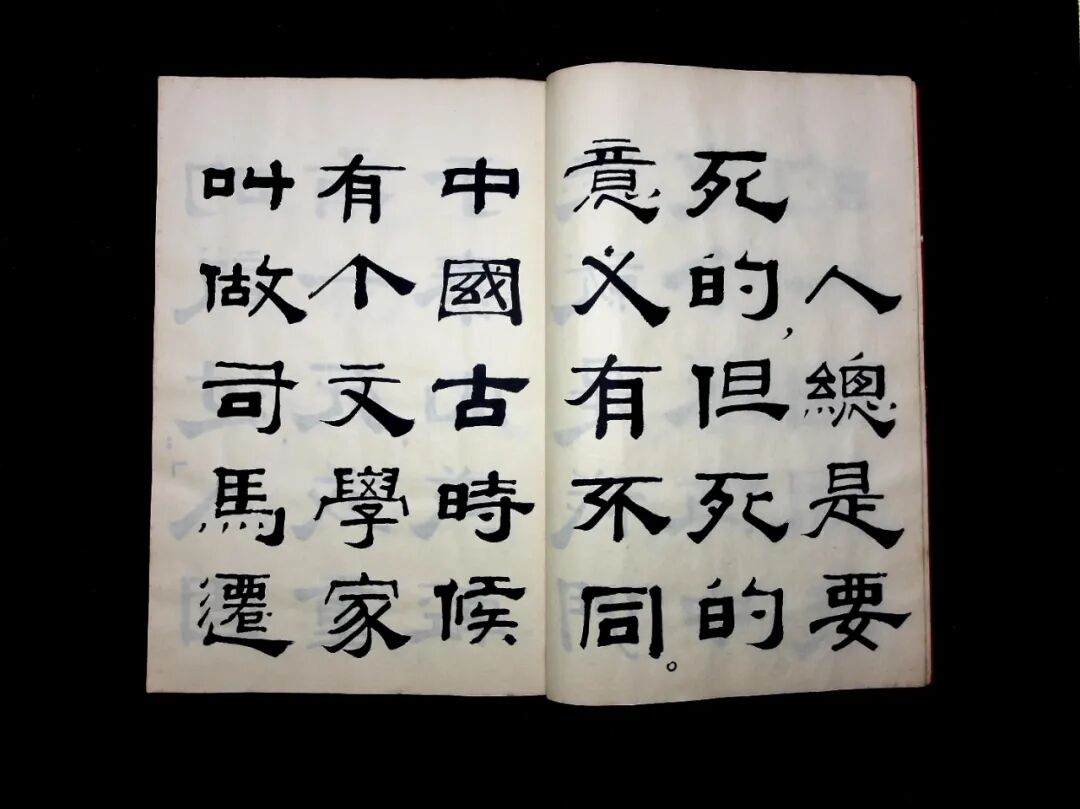 人總是要
死的,但死的
意义有不同。
中國古時候
有个文學家
叫做司馬遷